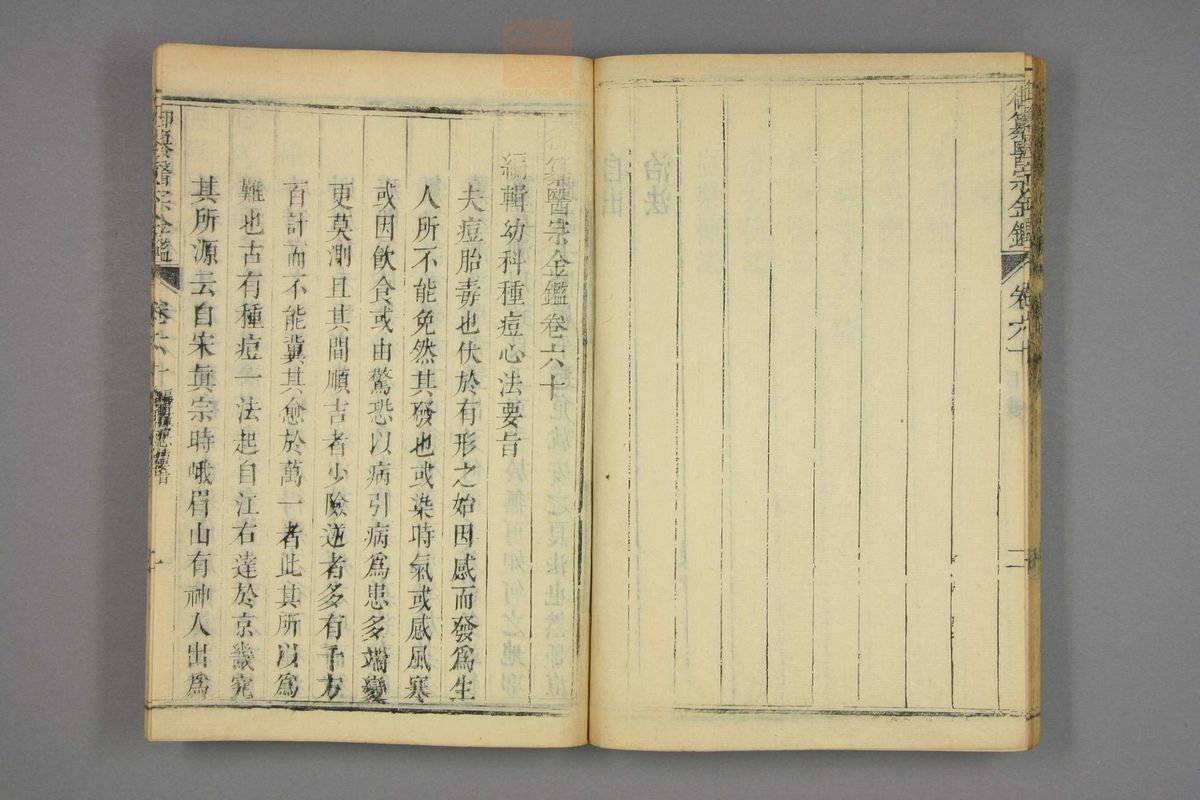 御纂醫宗金鑑 卷六十 二
御纂醫宗金鑑卷六十
編輯幼科種痘心法要旨
夫痘胎毒也伏於有形之始因感而發爲生
人所不能免然其發也或染時氣或感風寒
或因飲食或由驚恐以病引病爲患多端變
更莫測且其間順吉者少險逆者多有千方
百計而不能冀其愈於萬一者此其所以爲
難也古有種痘一法起自江右達於京畿究
其所源云自宋眞宗時峨眉山有神人出爲
御纂醫宗金鑑 卷六十 一